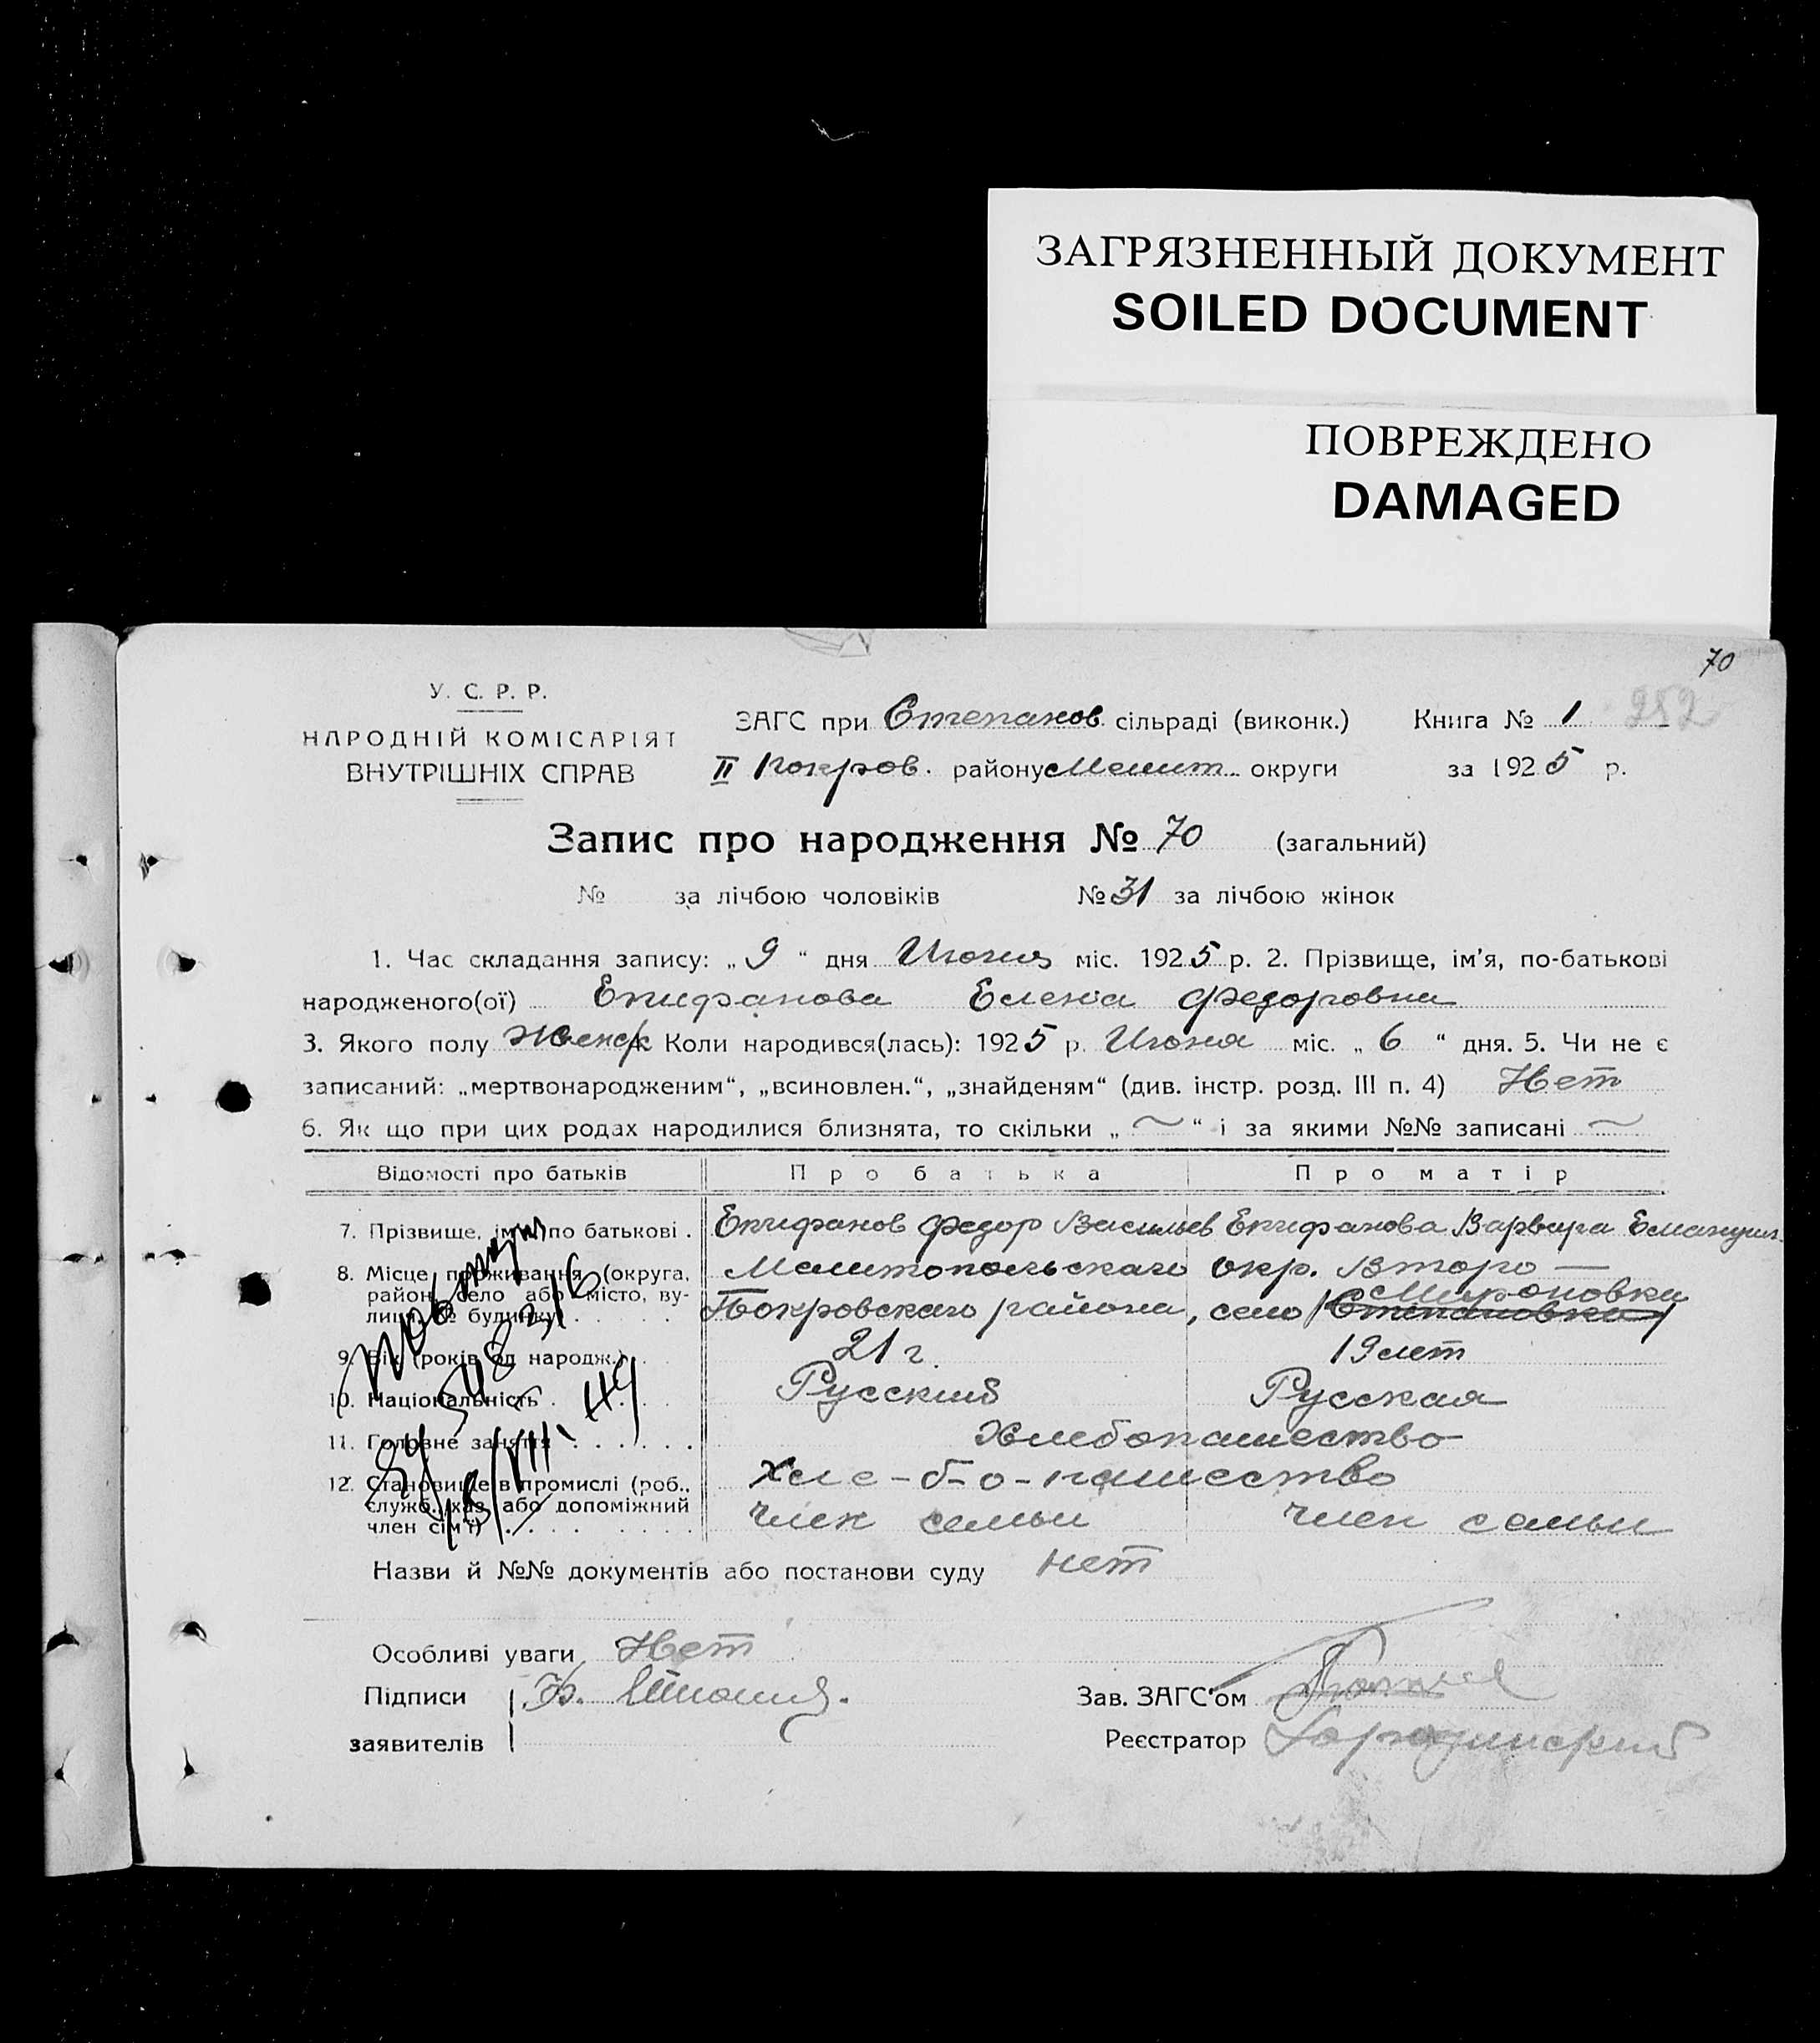 ЗАГРЯЗНЕННЫЙ ДОКУМЕНТ
SOILED DOCUMENT
ПОВРЕЖДЕНО
DAMAGED
70
У. С. Р. Р.
НАРОДНІЙ КОМІСАРІЯТ
ВНУТРІШНІХ СПРАВ
ЗАГС при Степанов. сільраді (виконк.) Книга № 1 252
II Покров. району Мелит. округи за 1925 р.
Запис про народження № 70 (загальний)
№ за лічбою чоловіків № 31 за лічбою жінок
1. Час складання запису: „ 9 “ дня Июня міс. 1925 р. 2. Прізвище, ім’я, по-батькові
народженого(ої) Епифанова Елена Федоровна
3. Якого полу Женск Коли народився(лась): 1925 р. Июня міс. „ 6 “ дня. 5. Чи не є
записаний: „мертвонародженим“, „всиновлен.“, „знайденям“ (див. інстр. розд. III п. 4) Нет
6. Як що при цих родах народилися близнята, то скільки „ ~ “ і за якими №№ записані ~
Відомості про батьків Про батька Про матір
7. Прізвище, ім'я, по батькові . Епифанов Федор Васильев Епифанова Варвара
8. Місце проживання (округа, Мелитопольскаго окр. Второ —
район, село або місто, ву-
Мироновка
лиця, № будинку) Покровскаго района, село (Степановка)
9. Вік (років од народж.) 21 г. 19 лет
10. Національність Русский Русская
11. Головне заняття Хлебопашество
12. Становище в промислі (роб., Хле-б-о-пашество
служб., хаз. або допоміжний
член сім'ї) член семьи член семьи
Назви й №№ документів або постанови суду нет
Особливі уваги Нет
Підписи
Зав. ЗАГС'ом
заявителів
Реєстратор